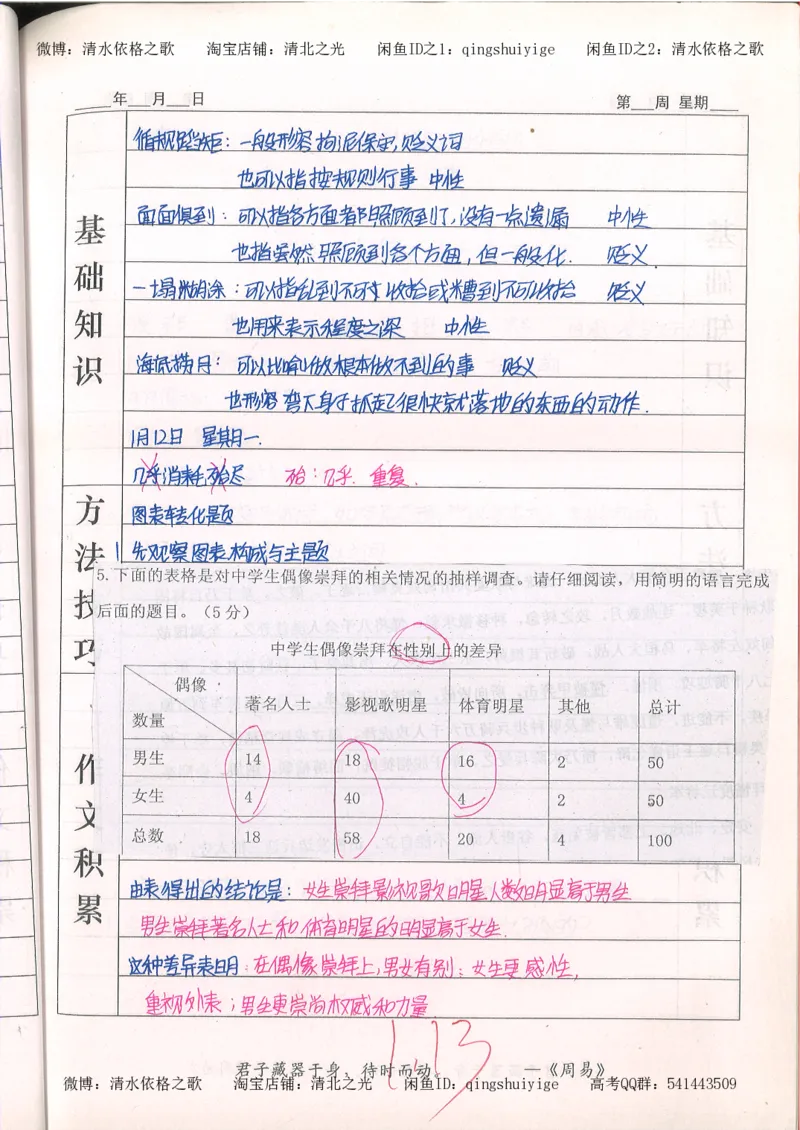 微博：清水依格之歌 淘宝店铺：清北之光 闲鱼ID之1：qingshuiyige 闲鱼ID之2：清水依格之歌
____年___月___日 第___周 星期____
基础知识
循规蹈矩：一般形容拘泥保守，贬义词
也可以指按规则行事 中性
面面俱到：可以指各方面都照顾到了，没有一点遗漏 中性
也指虽然照顾到各个方面，但一般化． 贬义．
一塌糊涂：可以指乱到不可收拾或糟到不可收拾 贬义
也用来表示程度之深 中性
海底捞月：可以比喻做根本做不到的事 贬义
也形容弯下身子抓起很快就落地的东西的动作．
1月12日 星期一．
几乎消耗殆尽 殆：几乎．重复．
方法技巧
图表转化题
1 先观察图表构成与主题
5.下面的表格是对中学生偶像崇拜的相关情况的抽样调查。请仔细阅读，用简明的语言完成
后面的题目。（5分）
中学生偶像崇拜在性别上的差异
偶像 数量 著名人士 影视歌明星 体育明星 其他 总计
男生 14 18 16 2 50
女生 4 40 4 2 50
总数 18 58 20 4 100
作文积累
由表得出的结论是：女生崇拜影视歌明星人数明显高于男生
男生崇拜著名人士和体育明星的明显高于女生．
这种差异表明：在偶像崇拜上，男女有别；女生更感性，
重视外表；男生更崇尚权威和力量
1.13
君子藏器于身，待时而动。——《周易》
微博：清水依格之歌 淘宝店铺：清北之光 闲鱼ID：qingshuiyige 高考QQ群：541443509